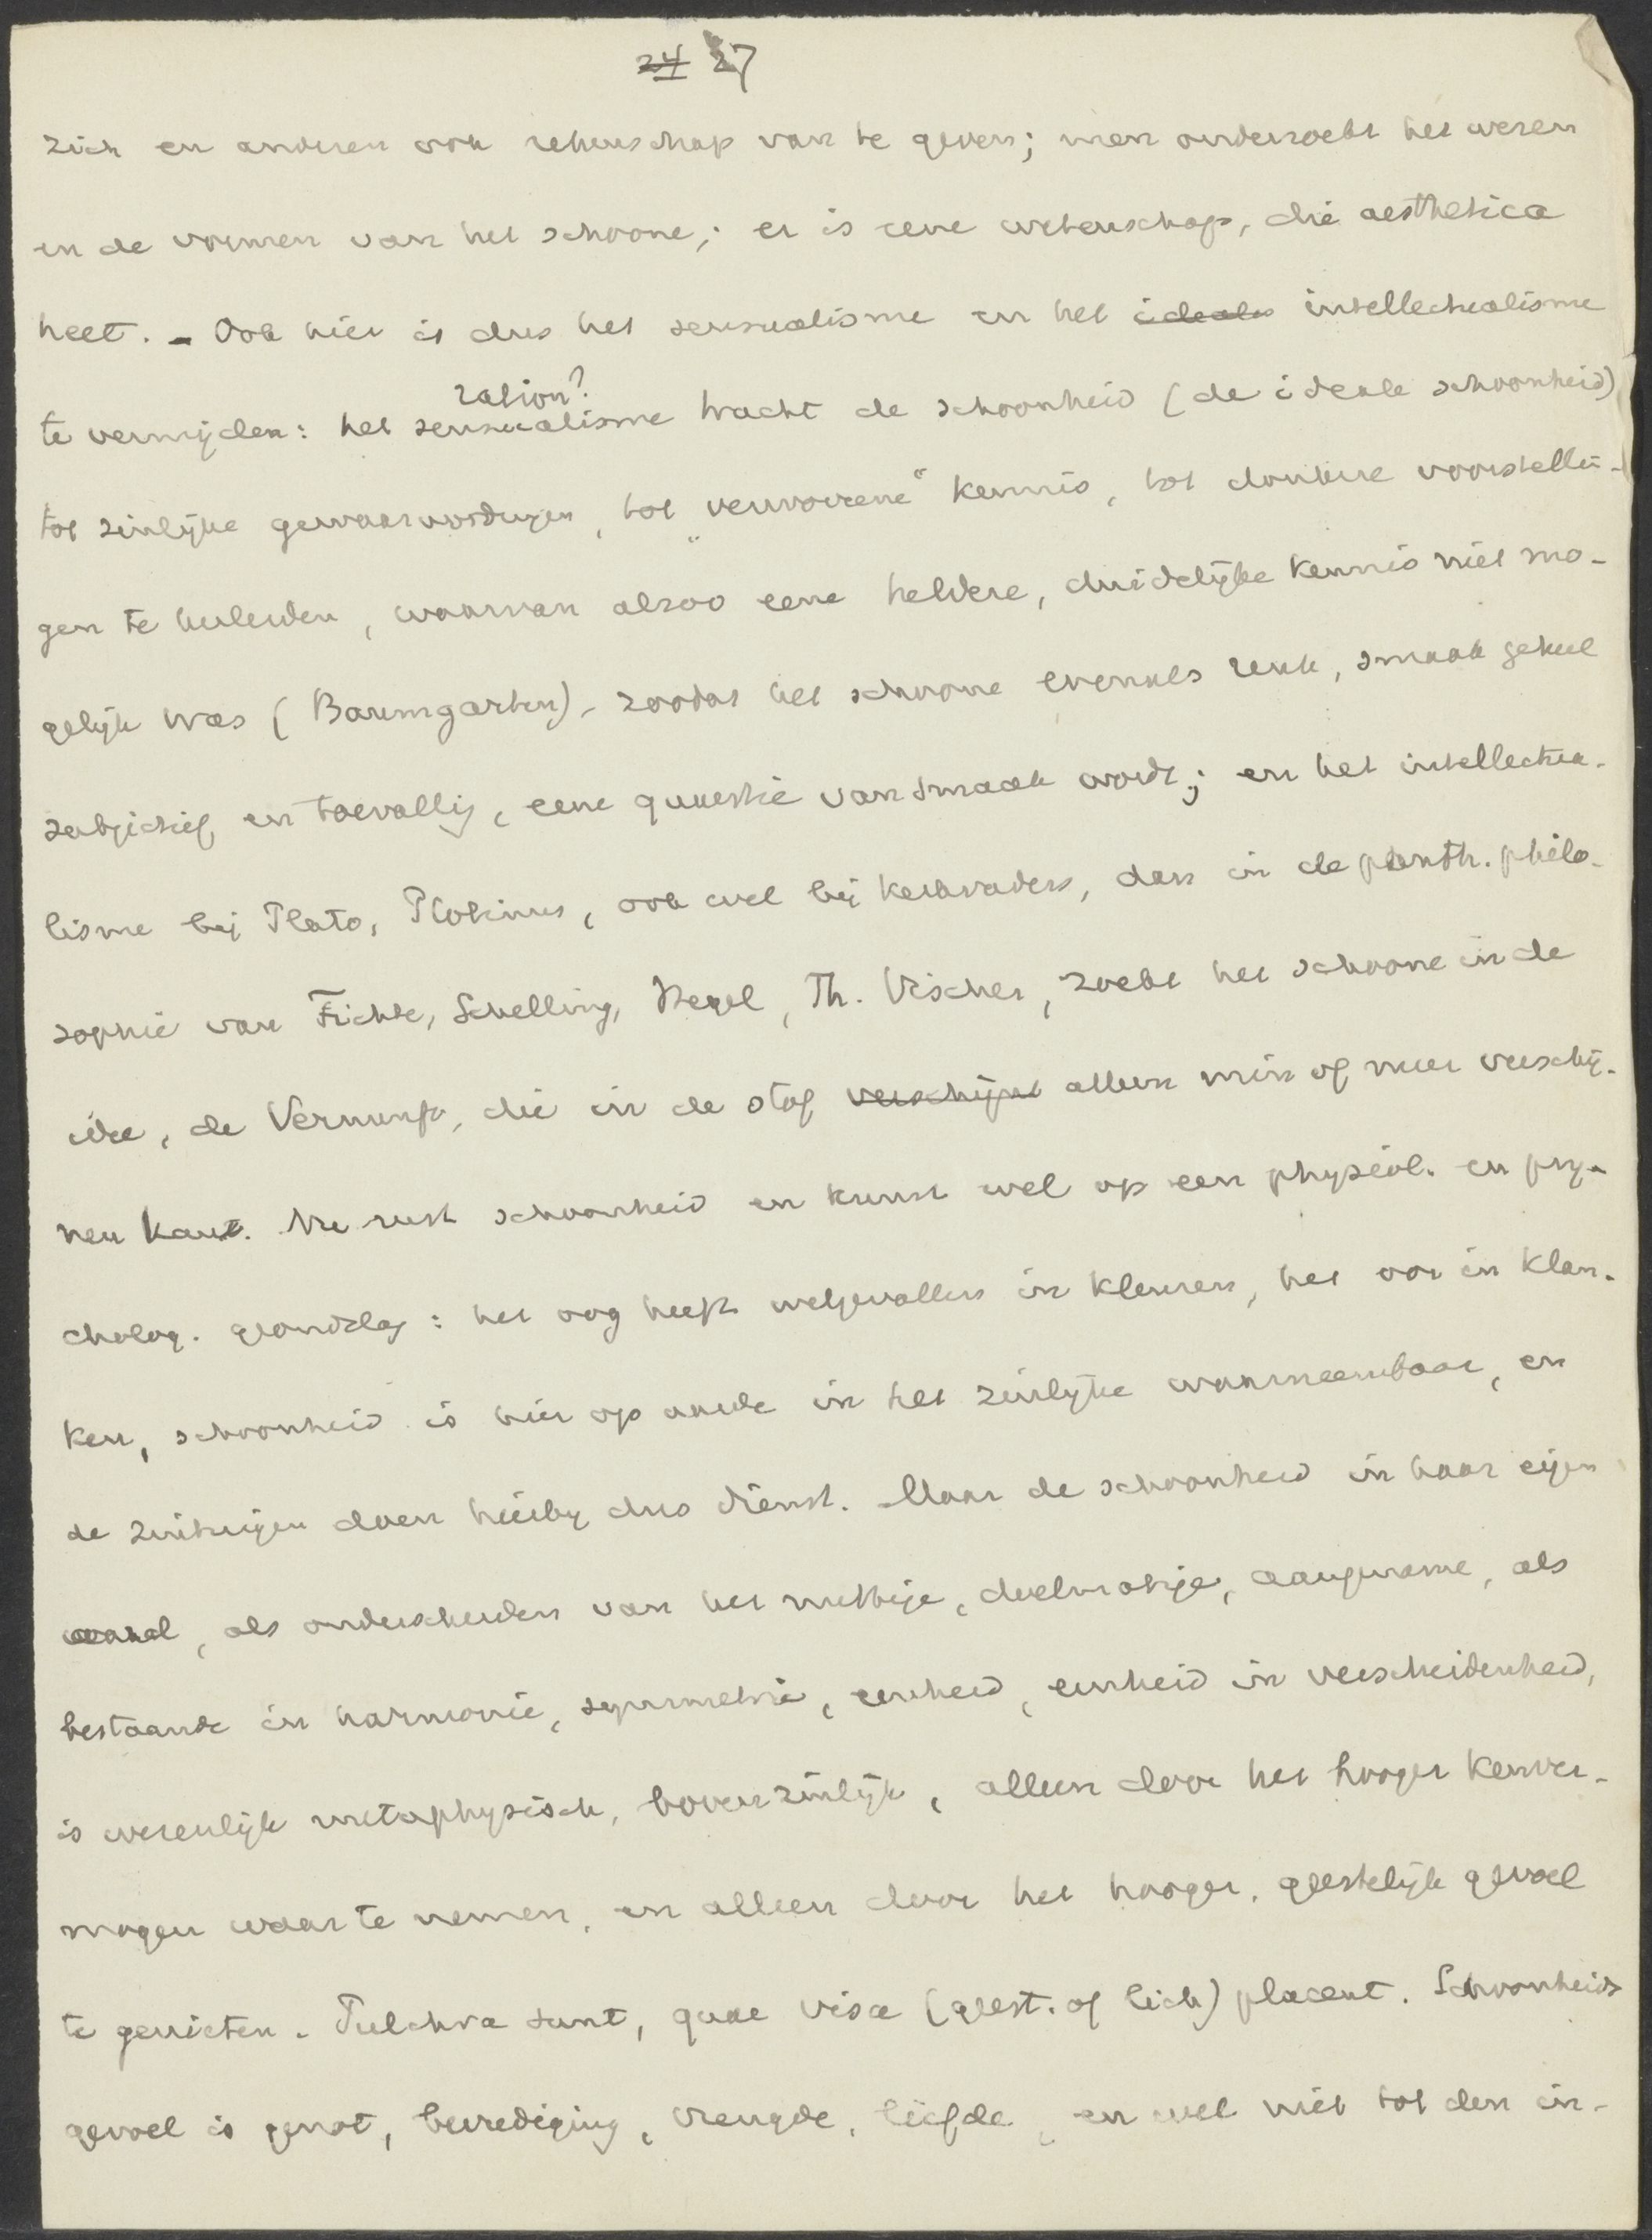 24 27
zich en anderen ook rekenschap van te geven; men onderzoekt het wezen
en de vormen van het schoone; er is eene wetenschap, die aesthetica
heet. - Ook hier is dus het sensualisme en het ideal intellectualisme
ration?
te vermijden: het sensualisme tracht de schoonheid (de ideale schoonheid)
tot zinlijke gewaarwordingen, tot „verworrene" kennis, tot donkere voorstellin-
gen te herleiden, waarvan alzoo eene heldere, duidelijke kennis niet mo-
gelijk was (Baumgarten), zoodat het schoone evenals reuk, smaak geheel
subjectief en toevallig, eene quaestie van smaak wordt; en het intellectua-
lisme bij Plato, Plotinus, ook wel bij kerkvaders, dan in de panth. philo-
sophie van Fichte, Schelling, Hegel, Th. Vischer, zoekt het schoone in de
idee, de Vernunft, die in de stof verschijnt alleen min of meer verschij-
nen kant. Nu rust schoonheid en kunst wel op een physiol. en psy-
cholog. grondslag: het oog heeft welgevallen in kleuren, het oor in klan-
ken, schoonheid is hier op aarde in het zinlijke waarneembaar, en
de zintuigen doen hierbij dus dienst. Maar de schoonheid in haar eigen
aard, als onderscheiden van het nuttige, doelmatige, aangename, als
bestaande in harmonie, symmetrie, eenheid, eenheid in verscheidenheid,
is wezenlijk metaphysisch, bovenzinlijk, alleen door het hooger kenver-
mogen waar te nemen, en alleen door het hooger, geestelijk gevoel
te genieten. Pulchra sunt, quae visa (geest. of lich) placent. Schoonheids
gevoel is genot, bevrediging, vreugde, liefde, en wel niet tot den in-